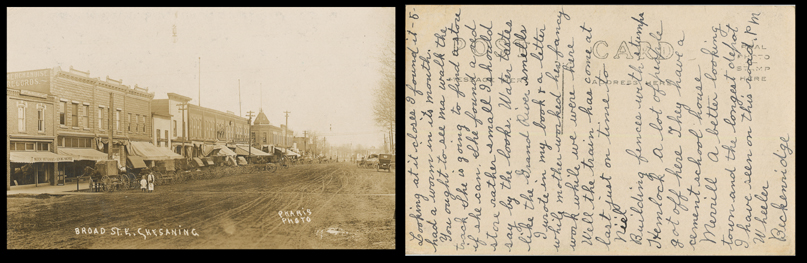 BROAD ST. E, CHESANING.
PHARIS
PHOTO
POST CARD
Looking at it close I found it
had a worm in its mouth.
You ought to see ma walk the
track. She is going to find a store
if she can. She found a seed
store rather small I should
say by the looks. Water tastes
like the Grand River smells
I wrote in my book & a letter
while mother worked her fancy
work while we were here
Well the train has come at
last just on time to
Building fences with stumps
Hemlock a lot of people
got off here They have a
cement school house
Merrill A better looking
town and the longest depot
I have seen on this road. P M
Wheeler
Breckenridge